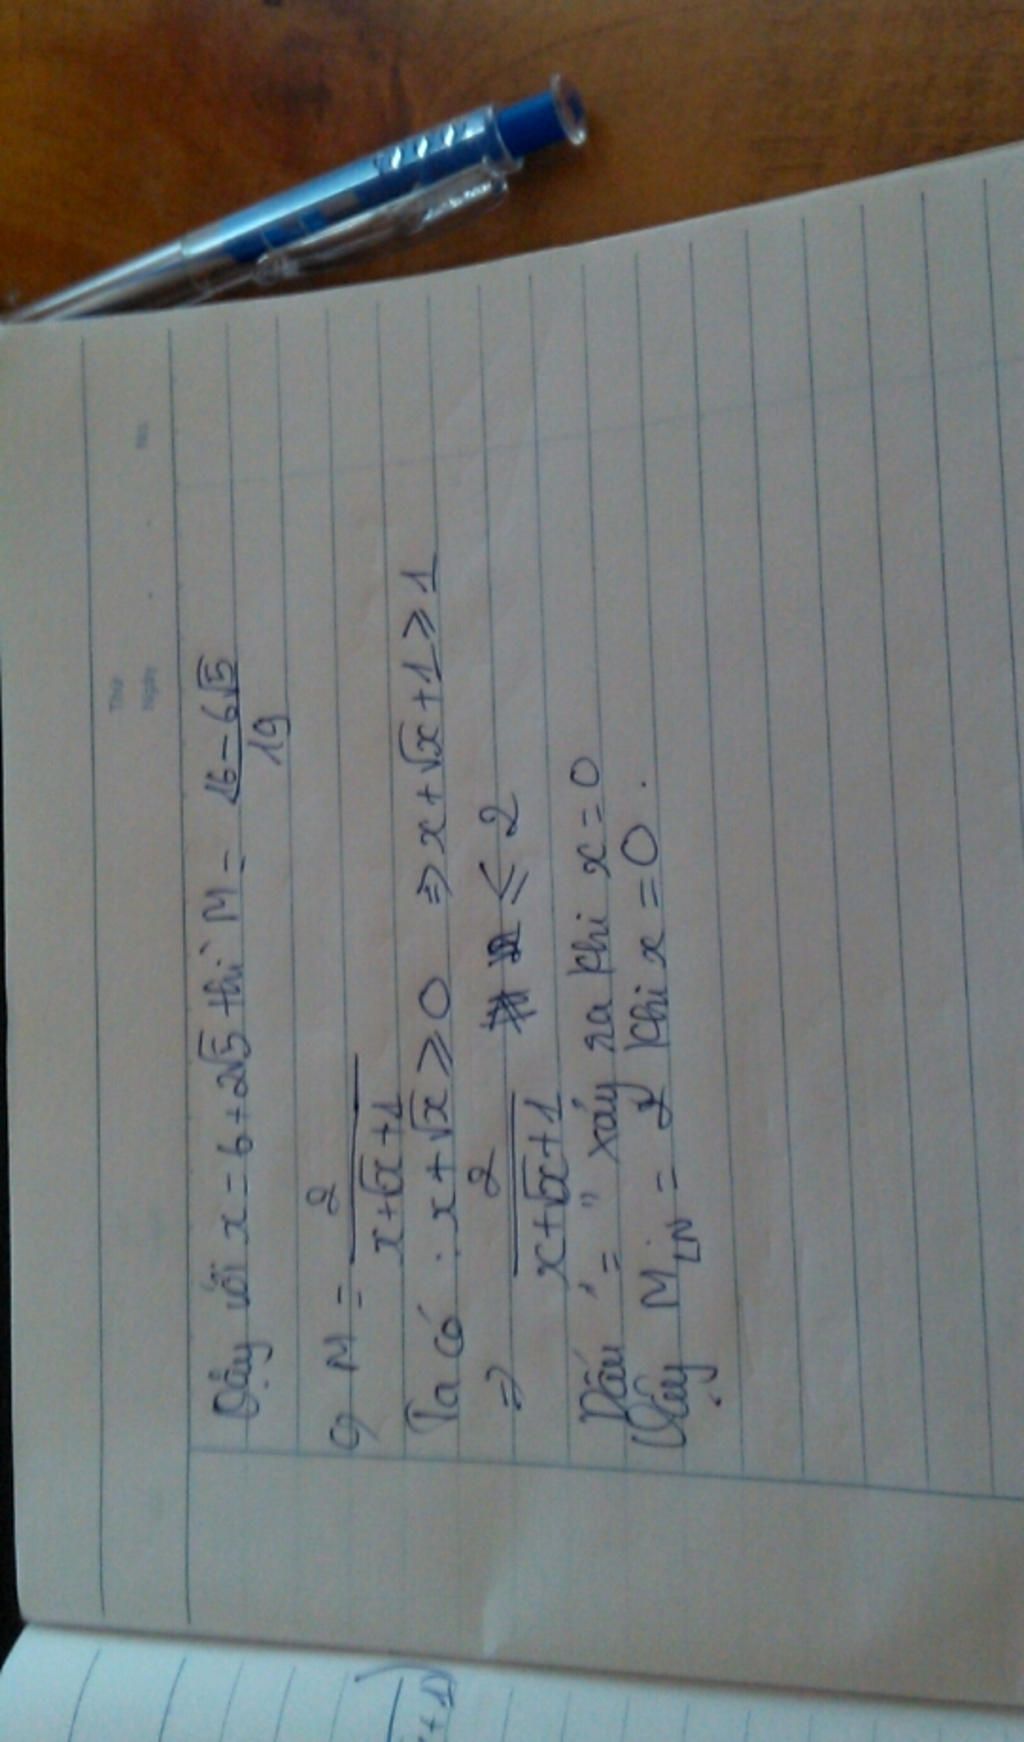 Thứ
Ngày
No.
Vậy với x = 6 + 2√5 thì M = 16 - 6√5 / 19
c) M = 2 / x + √x + 1
Ta có : x + √x ⩾ 0 ⇒ x + √x + 1 ⩾ 1
⇒ 2 / x + √x + 1 ≤ 2
Dấu " = " xảy ra khi x = 0
Vậy M LN = 2 khi x = 0 .
+ 1)